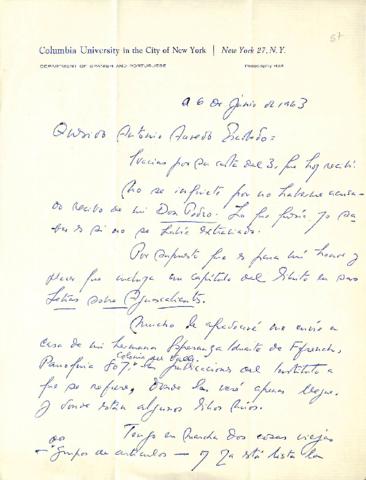 57
Columbia University in the City of New York | New York 27, N.Y.
DEPARTMENT OF SPANISH AND PORTUGUESE Philosophy Hall
a 6 de junio de 1963
Querido Antonio Acevedo Escobedo:
Gracias por su carta del 3, que hoy recibí.
No se inquiete por no haberme acusa-
do recibo de mi Don Pedro. Lo que quería yo sa-
ber es si no se había extraviado.
Por supuesto que es para mí honor y
placer que incluya un capítulo del en sus
Letras sobre Aguascalientes.
Mucho le que me envíe a
casa de mi hermana Esperanza Iduarte de
colonia del Valle
807, las publicaciones del Instituto a
que se refiere, donde las veré apenas llegue.
Y donde están algunos libros míos.
Tengo en marcha dos cosas viejas
grupos de artículos — y ya está lista